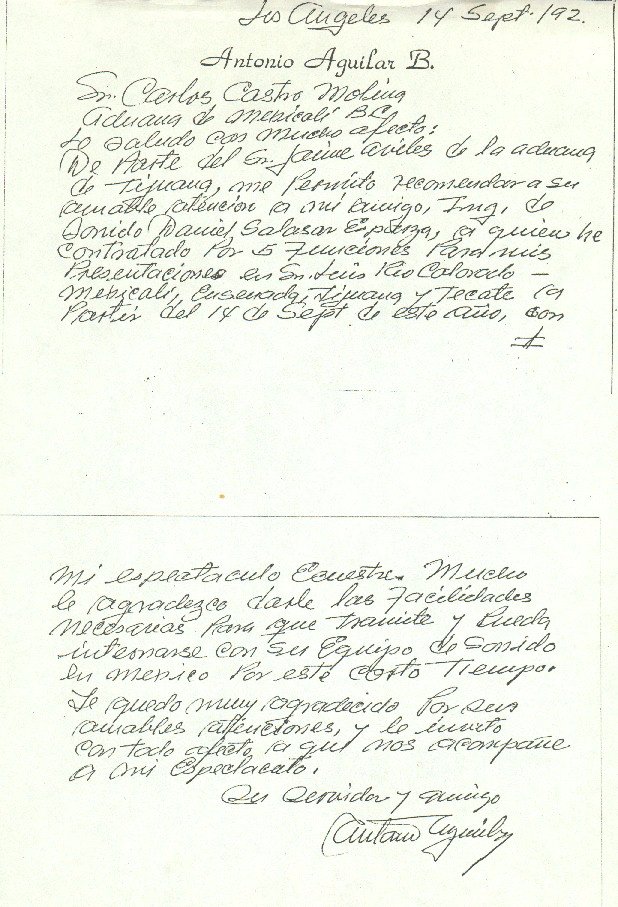 Los Angeles 14 Sept. /92.
Antonio Aguilar B.
Sr. Carlos Castro Molina
aduana de Mexicali B.C.
Le saludo con mucho afecto:
De Parte del Sr. Jaime Aviles de la aduana
de Tijuana, me Permito recomendar a su
amable atencion a mi amigo, Ing. de
Sonido Daniel Salasar Esparza, a quien he
contratado Por 5 Funciones Para mis
Presentaciones en Sn. Luis Rio Colorado –
Mexicali, Ensenada, Tijuana y Tecate a
Partir del 14 de Sept de este año, con
Mi espectaculo Ecuestre. Mucho
le agradezco darle las Facilidades
necesarias Para que tramite y Pueda
internarse con su Equipo de Sonido
en Mexico Por este corto Tiempo.
Le quedo muy agradecido Por sus
amables atenciones, y le invito
con todo afecto, a que nos acompañe
a mi Espectaculo.
Su Servidor y amigo
Antonio Aguilar